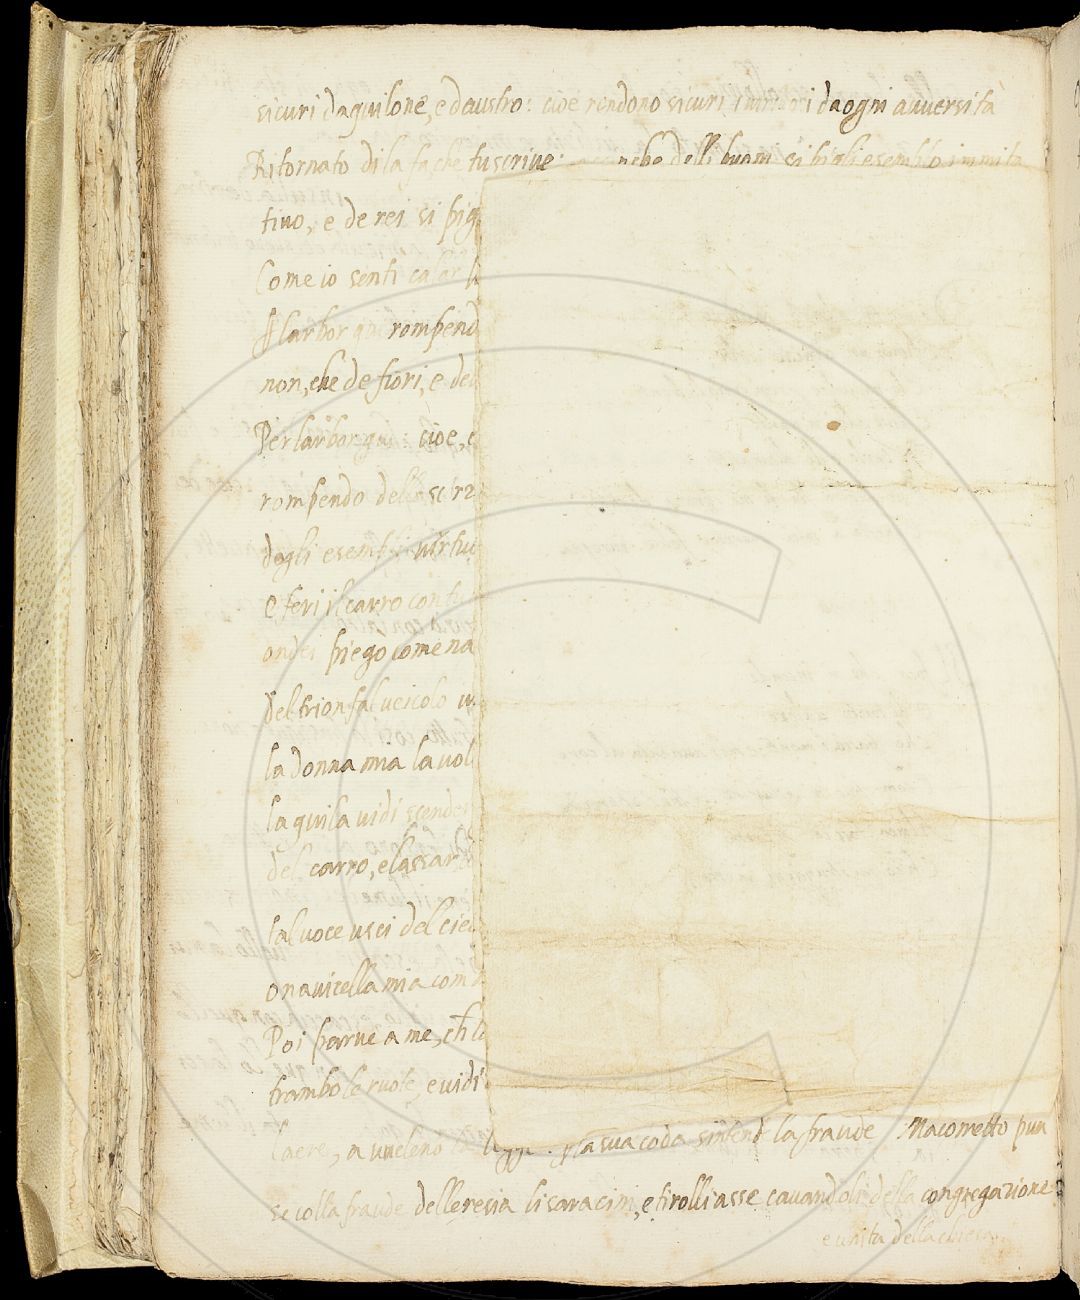 sicuri daquilone, e daustro: cioe rendono sicuri i miseri da ogni auuersità
Ritornato di la fa che tu scriue: che delli buoni si pigli esemplo immita
tiuo, e de rei si pig
Come io senti calar
P larbor giu rompend
non, che de fiori, e de
Per larbor giu: cioe,
rompendo della scorz
degli esempli uirtu
e feri il carro con tu
ondei piegò come na
del trionfal ueicolo u
la donna mia la uol
laquila uidi scender
del carro, e lassar
tal uoce usci del cie
o nauicella mia com
Poi parue a me, che la
trambo le ruote, e uidi
laere, a ueleno la sua coda sintende la fraude Macometto pun
se colla fraude delleresia li saracini, e tirolli asse cauandoli della congregazione
e unita della chiesa